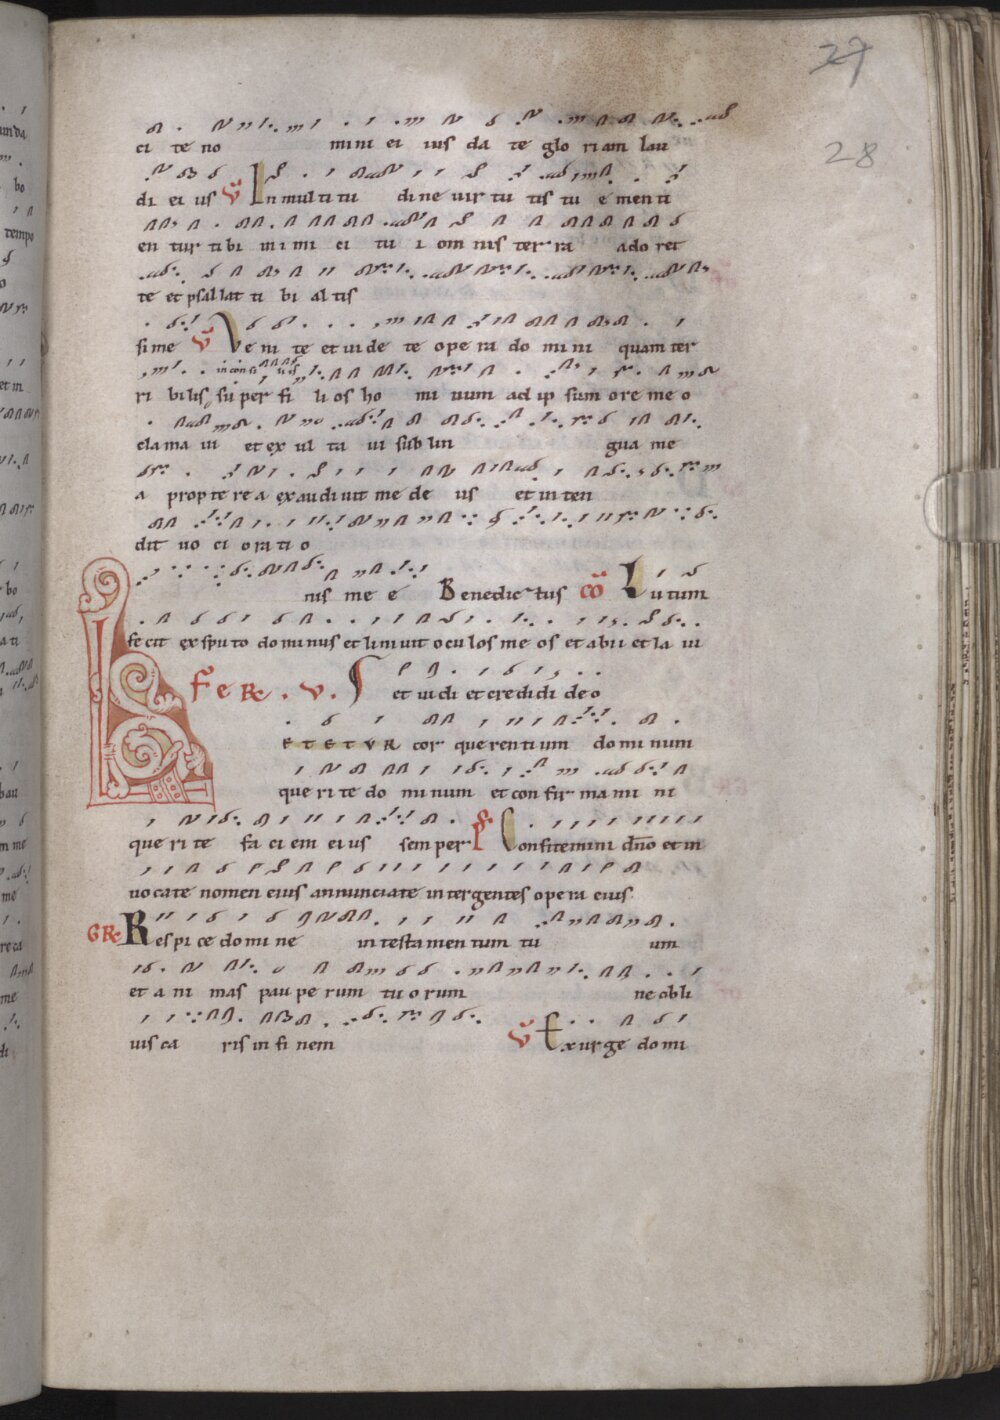 27
28
ci te no mini ei ius da te glo riam lau
di ei us V̄ In multitu dine uir tu tis tu e menti
en tur tibi inimi ci tu i om nis ter ra ado ret
te et psallat ti bi al tis
sime V̄ Veni te et uide te ope ra do mini quam ter
in con si liis
ri bilis super fi li os ho mi num ad ip sum ore me o
clama ui et ex ul ta ui sub lin gua me
a prop te re a exaudiuit me de us et in ten
dit uo ci ora ti o
nis me e Benedic tus cō Lutum
fecit ex sputo dominus et liniuit oculos me os et abii et la ui
et uidi et credidi deo
FeR . v .
ETETVR cor querentium dominum
queri te do minum et con fir mamini
queri te fa ci em ei us semper Confitemini dn̄o et in
uocate nomen eius annunciate inter gentes opera eius
GR Respi ce domi ne in testamentum tu um
et a ni mas pau pe rum tu orum ne obli
uis ca ris in fi nem V̄ Exurge domi